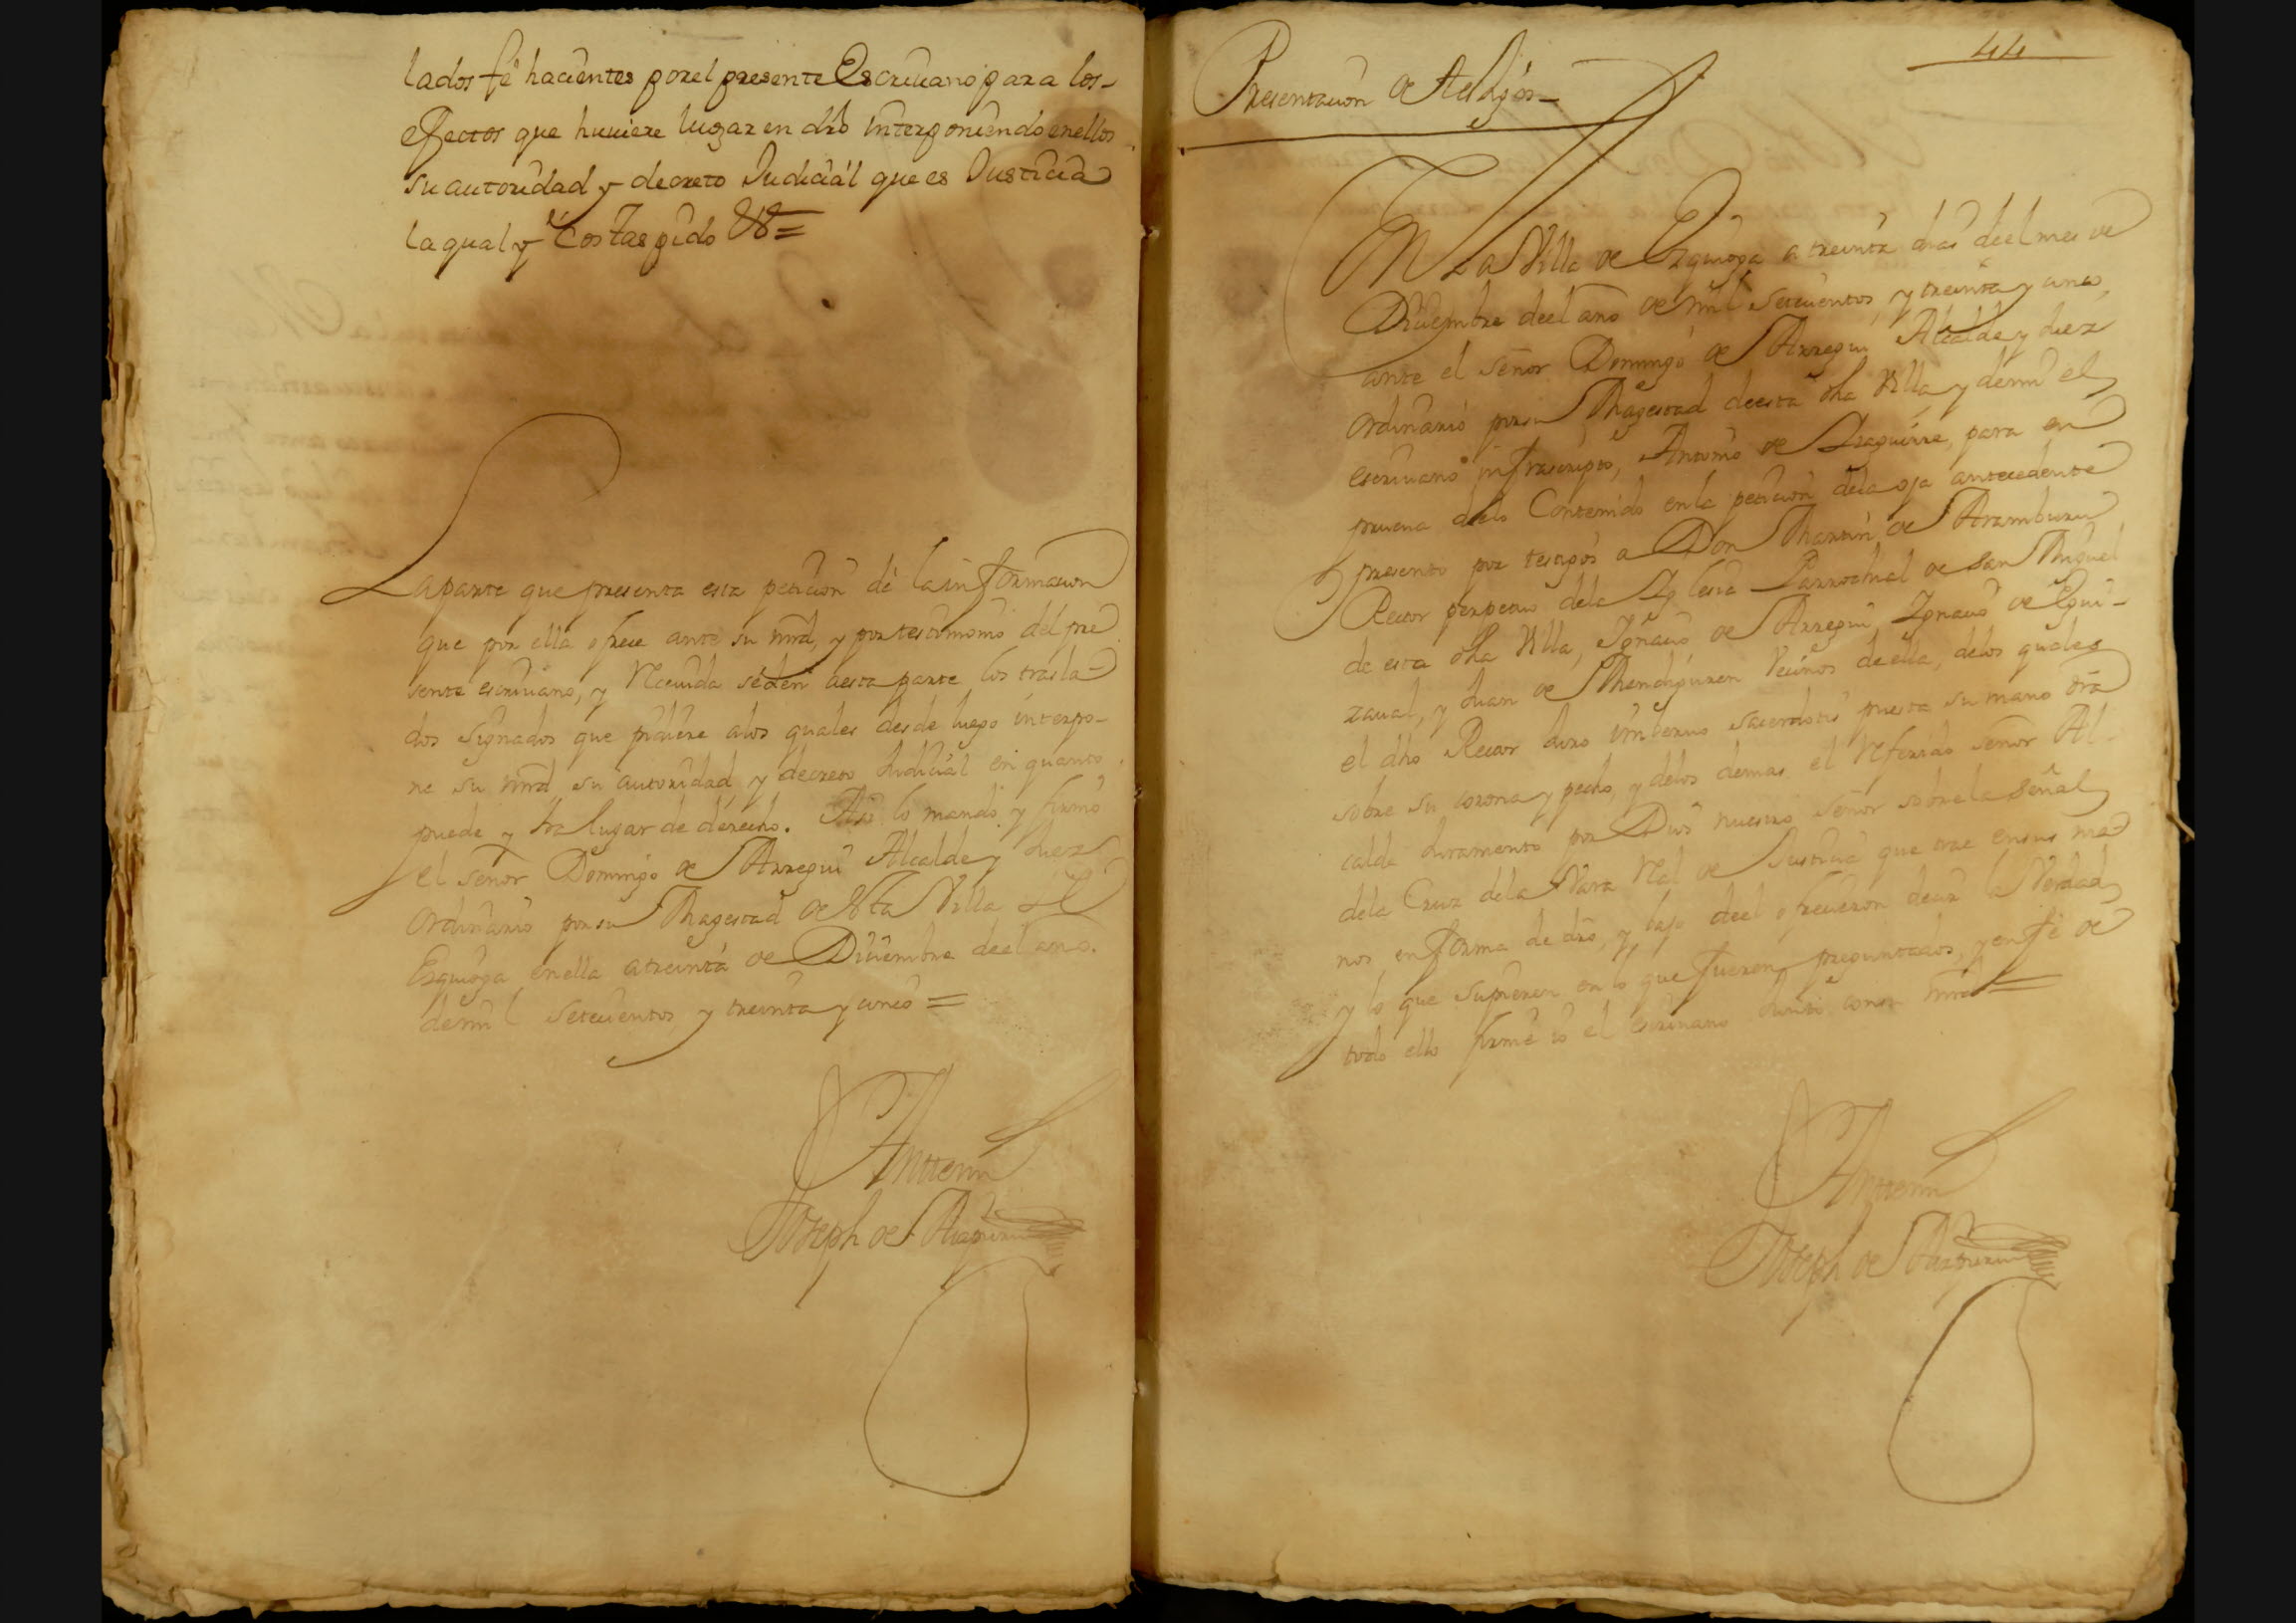 lados fé hacientes por el presente Escriuano para los
efectos que huuiere lugar en dro interponiendo en ellos
su autoridad y decreto Judiciál que es Justicia
la qual y costas pido &a=
La parte que presenta esta peticion dé la informacion
que por ella ofrece ante su mrd, y por testimonio del pre
sente escriuano, y Reciuida se den a esta parte los trasla
dos signados que pidiere a los quales desde luego interpo-
ne su mrd su autoridad y decreto Judicial en quanto
puede y ha lugar de derecho. Assi lo mandó y firmó
el señor Domingo de Arregui Alcalde y Juez
ordinario por su Magestad de esta Villa de
Ezquioga en ella a treinta de Diciembre de el año
de mil setecientos y treinta y cinco =
Antemi
Joseph de
44
Presentacion de testigos
En la Villa de Ezquioga a treinta dias de el mes de
Diciembre de el año de mil setecientos, y treinta y cinco,
ante el señor Domingo de Arregui Alcalde y Juez
ordinario por su Magestad de esta dha Villa y de mi el
escriuano infrascripto, Antonio de Izaguirre, para en
prueua de lo Contenido en la peticion de la oja antecedente
presento por testigos a Don Martin de Aramburu
Rector perpetuo de la Iglesia Parrochial de San Miguel
de esta dha Villa, Ignacio de Arregui Ignacio de Egui-
zaual, y Juan de Mendiguren Vecinos de ella, de los quales
el dho Rector Juro in verbo sacerdotis puesta su mano dra
sobre su corona y pecho, y de los demas el Referido señor Al-
calde Juramento por Dios nuestro señor sobre la señal
de la Cruz de la Vara Rl de Justicia que trae en sus ma
nos en forma de dro, y bajo de el ofrecieron decir la Verdad
y lo que supieren en lo que fueren preguntados, y en fé de
todo ello firmé yo el escriuano Junto con su mrd =
Antemi
Joseph de